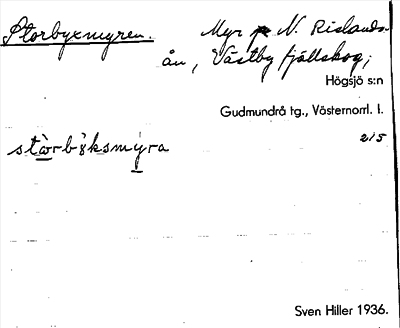 Storbyxmyren. Myr på N. Rislands-
ån, Västby fjällskog;
Högsjö s:n
Gudmundrå tg., Västernorrl. l.
215
Sven Hiller 1936.